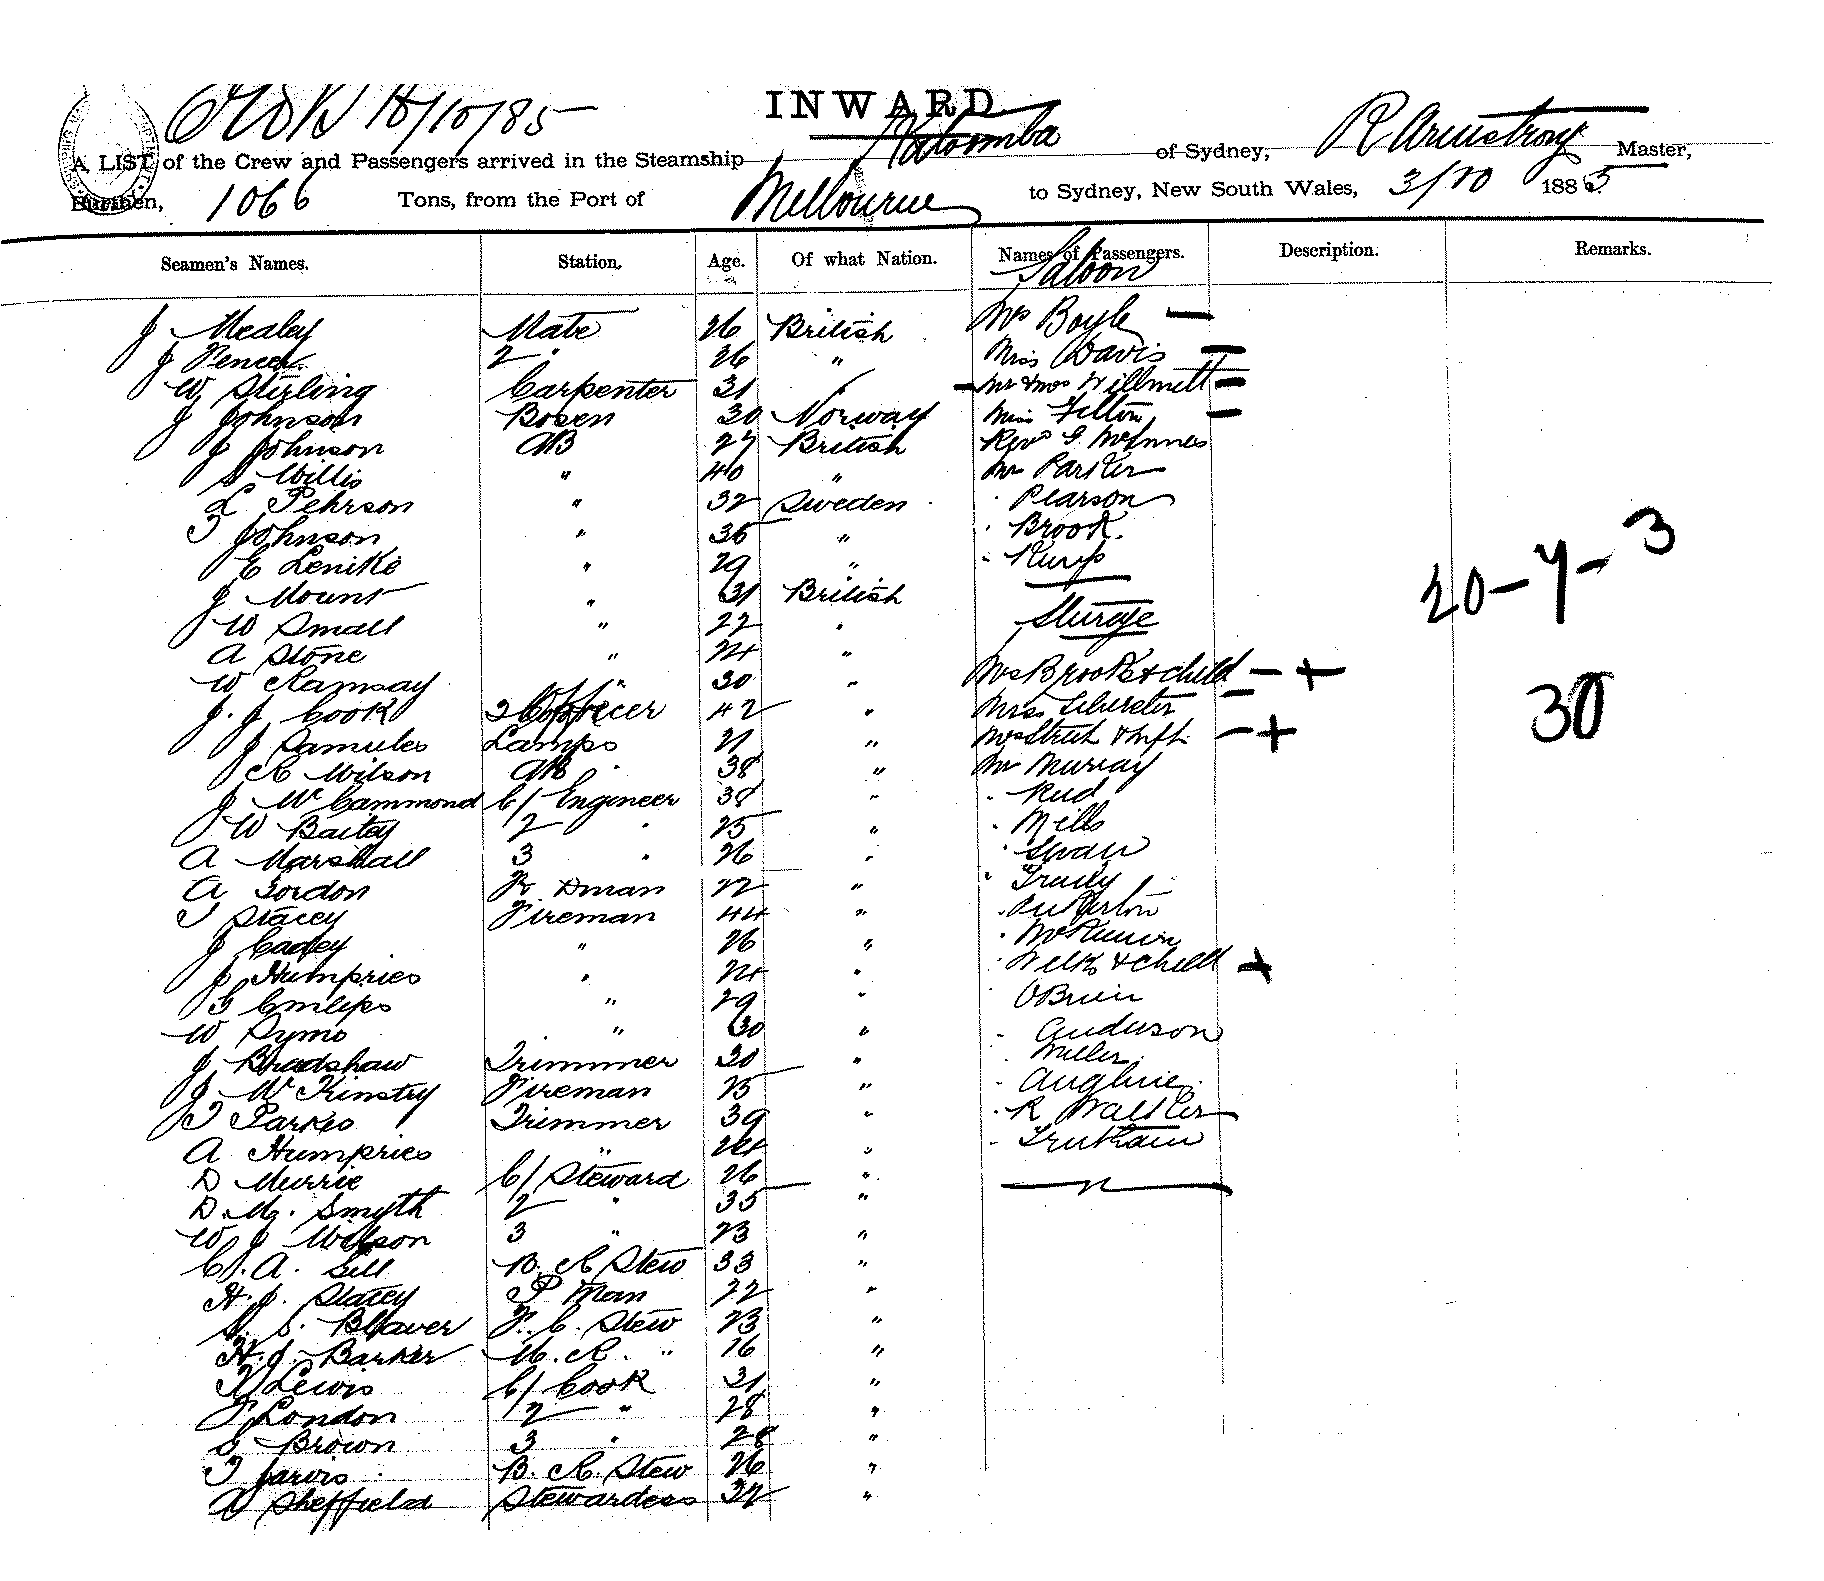 10/10/85
INWARD
A LIST of the Crew and Passengers arrived in the Steamship Katoomba of Sydney, R Armstrong Master,
Burthen, 1066 Tons, from the Port of Melbourne to Sydney, New South Wales, 3/10 1885
Seamen's Names. Station. Age. Of what Nation. Names of Passengers. Description. Remarks.
Saloon
J Mealey Mate 26 British Mrs Boyle —
J 2 " 26 " Miss Davis —
W Stirling Carpenter 31 Mr & Mrs Willmett —
J Johnson Bosen 30 Norway Miss Felton —
J Johnson AB 27 British Revd G. McInnes
S Willis " 40 " Mr Parker
L Pehrson " 32 Sweden " Pearson
T Johnson " 36 " " Brook.
C Lenike " 29 " "
J Mount " 31 British
W Small " 22 " Steerage
A Stone " 24 "
W Ramsay " 30 " Mrs Brook & child — +
J. J. Cook 2 Officer 42 " Miss —
J Samules Lamps 21 " Mrs — +
C Wilson AB 38 " Mr Murray
J McCammond C/ Engineer 38 " " Reid
W Bailey 2 " 25 " " Mills
A Marshall 3 " 26 " " Swan
A Gordon 22 " "
T Stacey Fireman 44 " "
J " 26 " "
J Humpries " 24 " " & child +
G " 29 " " OBrien
W Syms " 30 " " Anderson
J Bradshaw Trimmer 20 " " Miller
J McKinstry Fireman 25 " "
T Parkes Trimmer 39 " " R Walker
A Humpries " 24 " "
D Murrie C/ Steward 26 "
D. M. Smyth 2 " 35 "
W J Wilson 3 " 23 "
C. A. Gill B. R Stew 33 "
H. J. Stacey P Man 22 "
S. S. F. C. Stew 23 "
H. J. Barker M. R. " 16 "
Lewis C/ Cook 31 "
London 2 " 28 "
G Brown 3 " 28 "
T Jarvis B. R. Stew 26 "
A Sheffield Stewardess 32 "
20-7-3
30